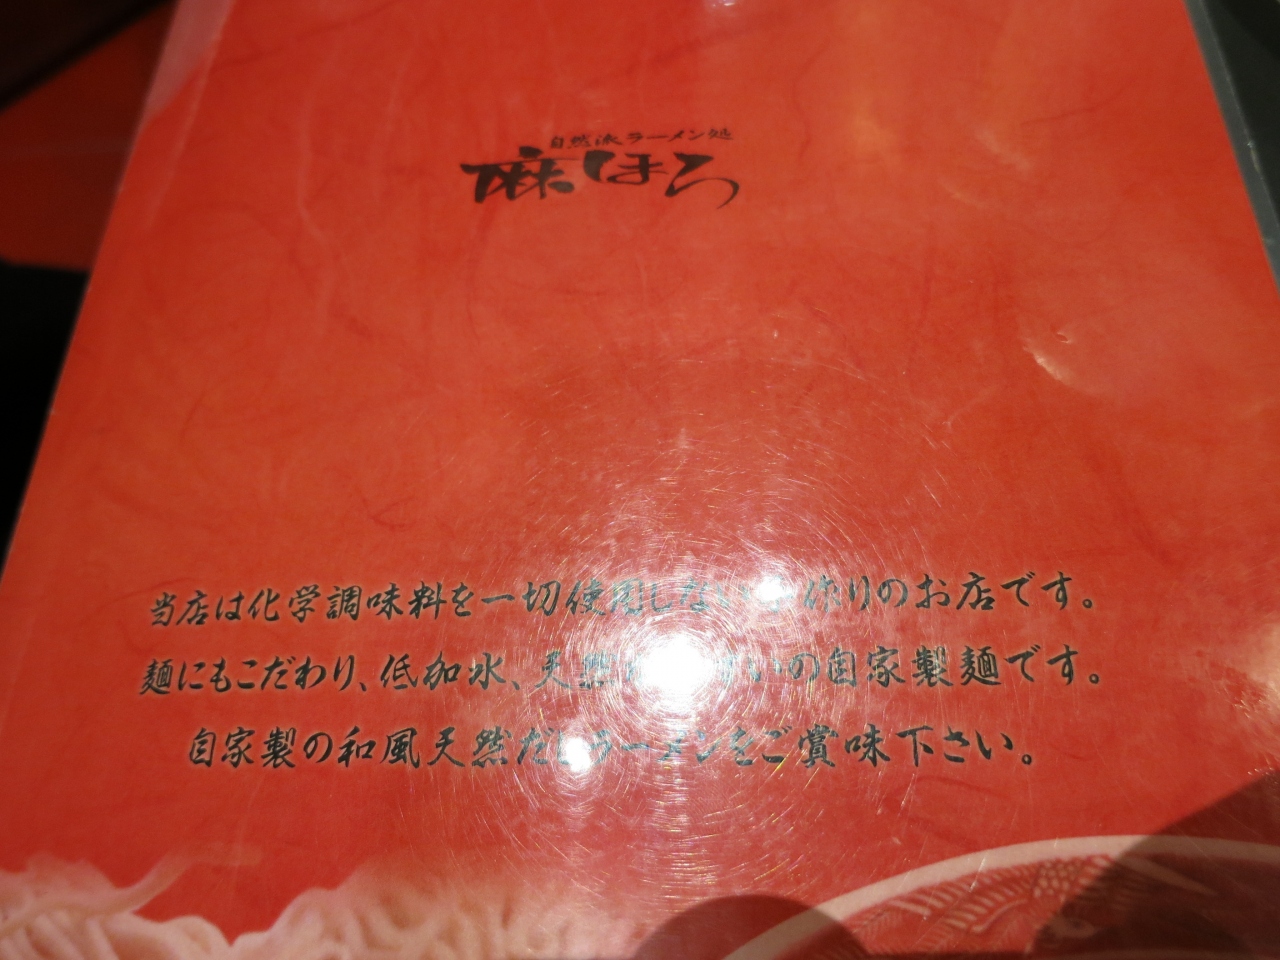 自然派ラーメン処
麻ほろ
当店は化学調味料を一切使用しない 作りのお店です。
麺にもこだわり、低加水、天然 いの自家製麺です。
自家製の和風天然だしラーメンをご賞味下さい。